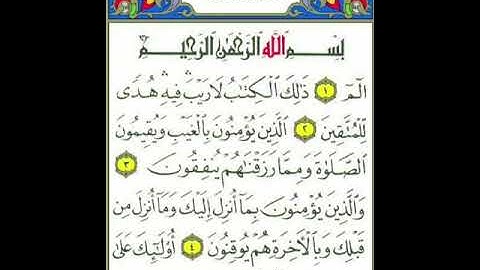 بِسْمِ اللَّهِ الرَّحْمَٰنِ الرَّحِيمِ
الٓمٓ ١ ذَٰلِكَ الْكِتَابُ لَا رَيْبَ ۛ فِيهِ ۛ هُدًى
لِّلْمُتَّقِينَ ٢ الَّذِينَ يُؤْمِنُونَ بِالْغَيْبِ وَيُقِيمُونَ
الصَّلَوٰةَ وَمِمَّا رَزَقْنَٰهُمْ يُنفِقُونَ ٣
وَالَّذِينَ يُؤْمِنُونَ بِمَا أُنزِلَ إِلَيْكَ وَمَا أُنزِلَ مِن
قَبْلِكَ وَبِالْآخِرَةِ هُمْ يُوقِنُونَ ٤ أُولَٰئِكَ عَلَىٰ